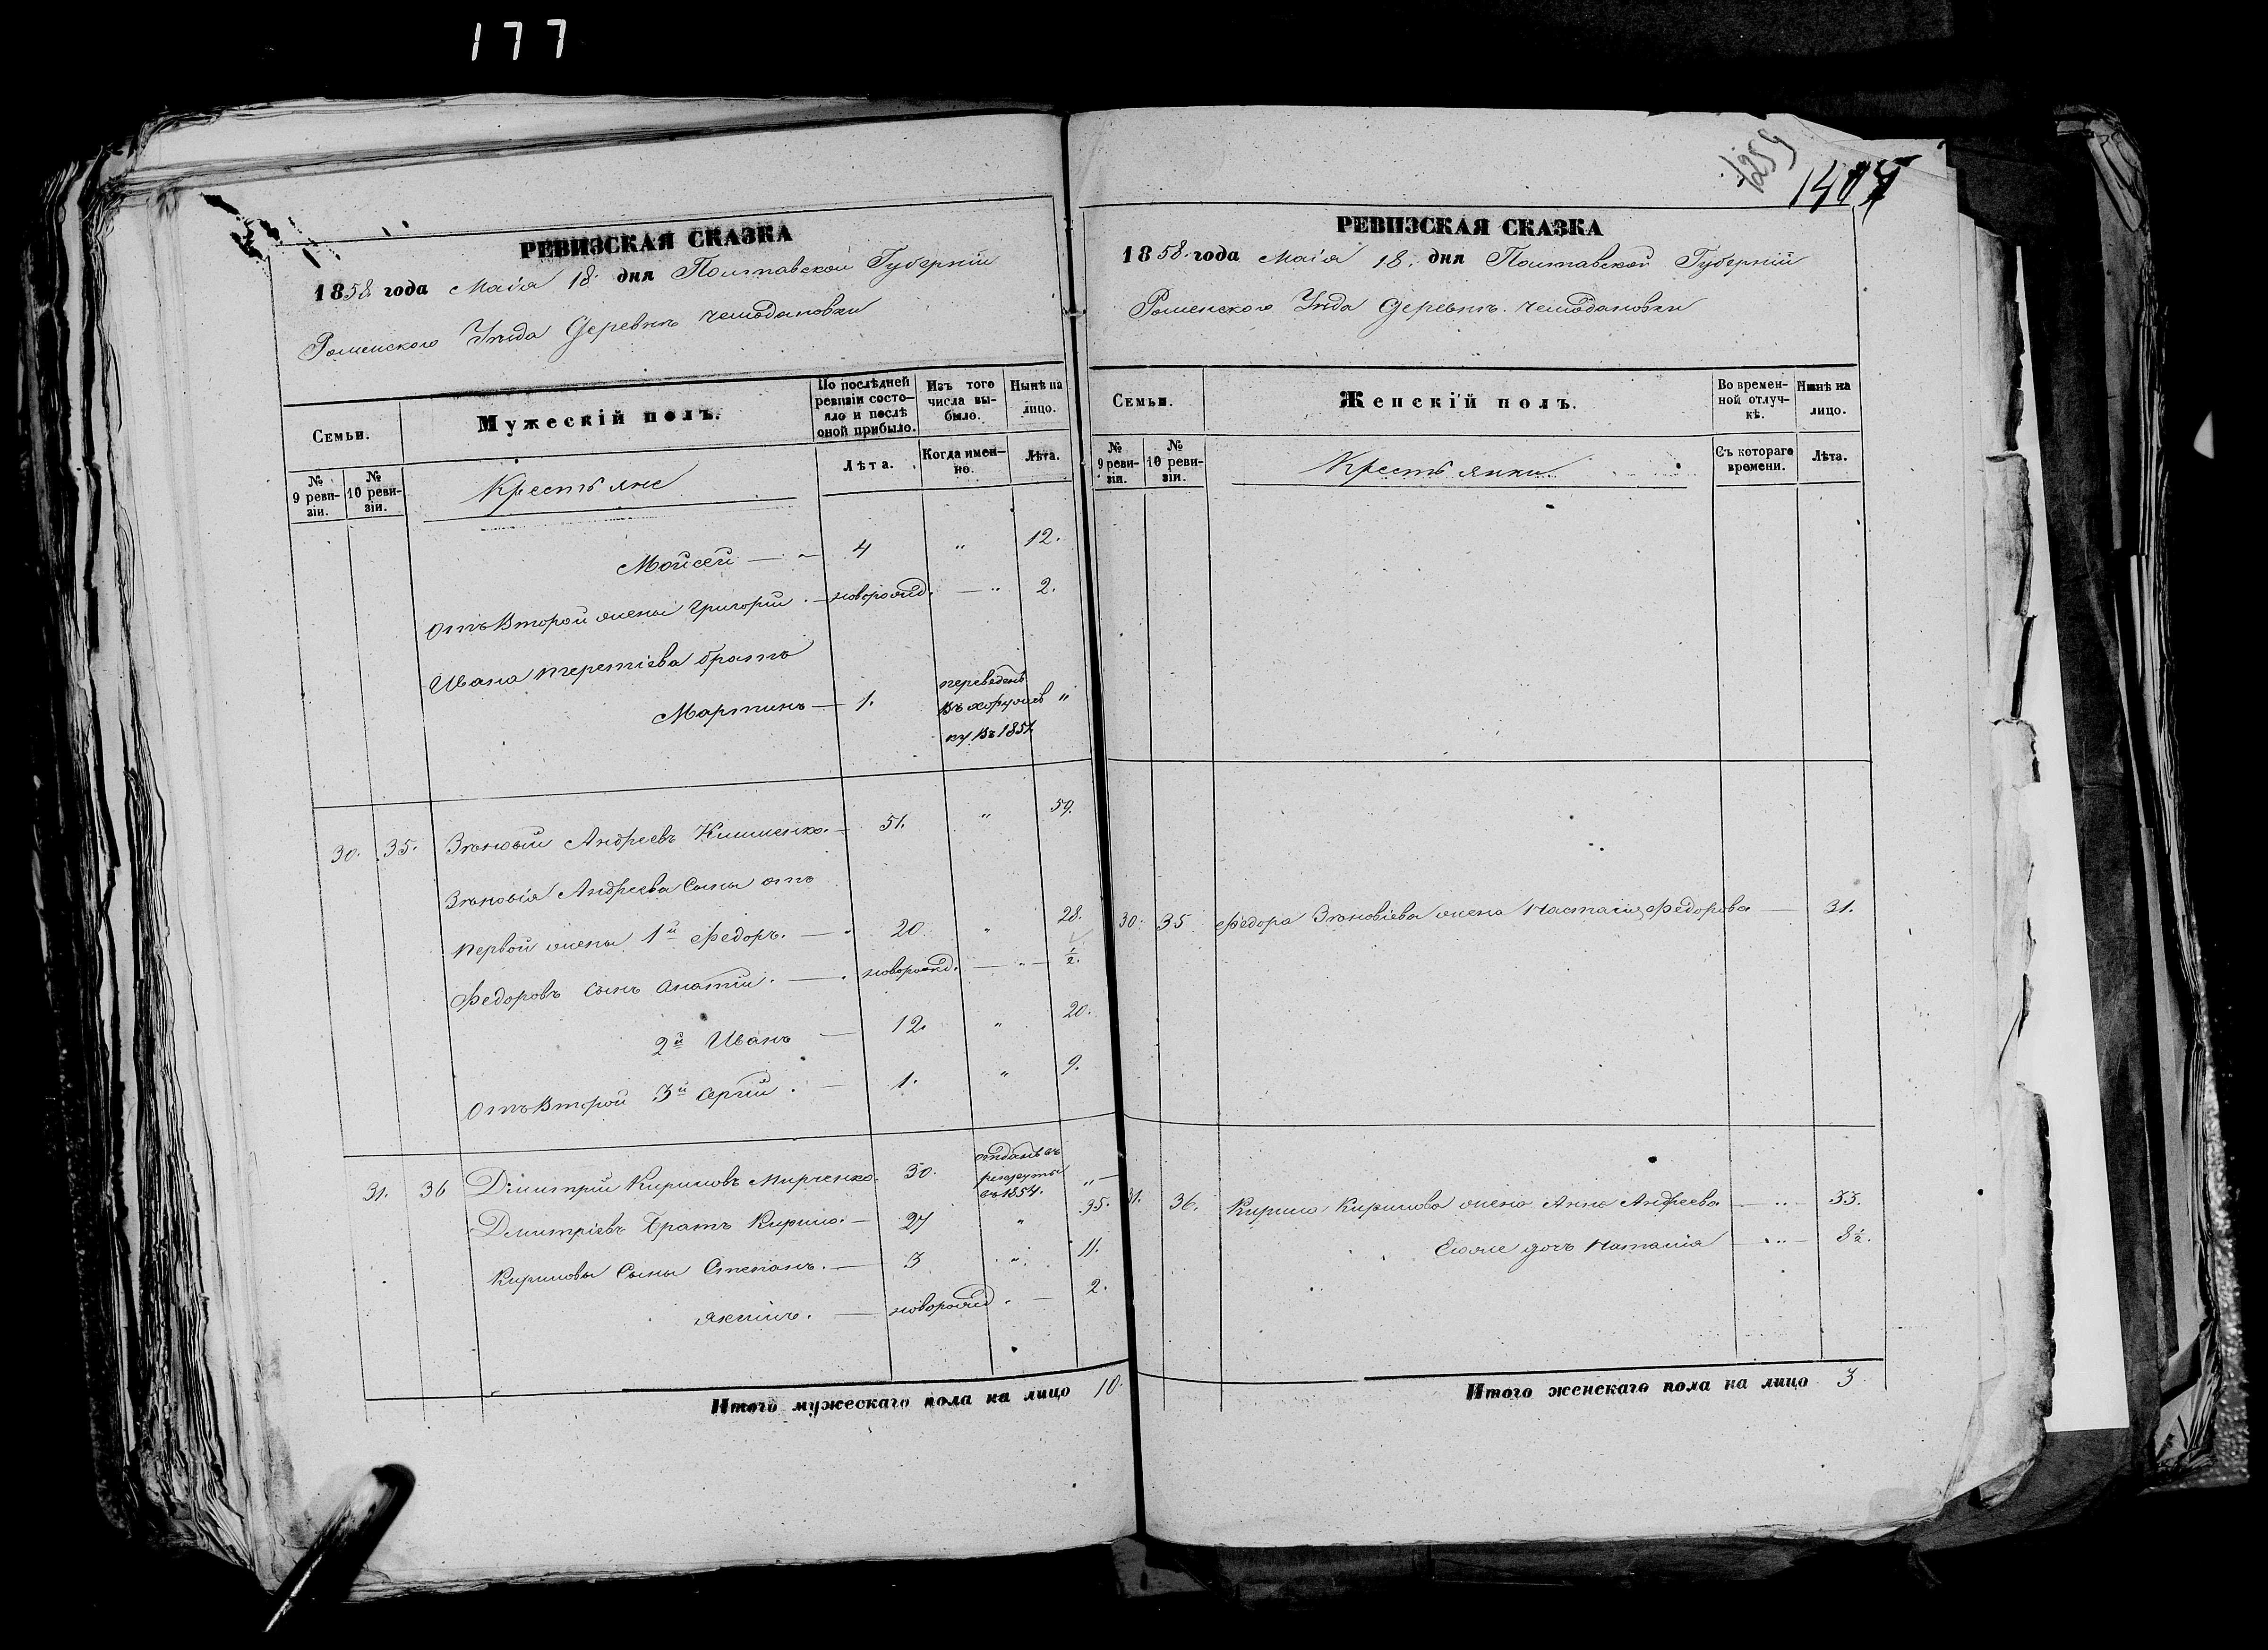 177
РЕВИЗСКАЯ СКАЗКА
1858 года Маія 18 дня Полтавской Губерніи
Роменского Уѣзда Деревнѣ Чемодановки
Семьи.
Мужескій полъ.
По послѣдней ревизіи состояло и послѣ оной прибыло.
Изъ того числа выбыло.
Нынѣ на лицо.
№ 9 ревизіи.
№ 10 ревизіи.
Крестьяне
Лѣта.
Когда именно.
Лѣта.
Мойсей — 4 " 12.
Отъ Второй жены Григорій — новорожд. — " 2.
Ивана Терентіева братъ
Мартинъ — 1. переведенъ въ 1851 "
30. 35. Зѣновій Андреевъ Клименко — 51. " 59.
Зѣновія Андреева Сыны отъ
первой жены 1й Федоръ. — 20. " 28.
Федоровъ сынъ — новорожд. — " — ½.
2й Иванъ — 12. " 20.
Отъ Второй 3й Сергій. — 1. " 9.
31. 36 Дмитрій Кириловъ — 30. отданъ въ рекруты въ 1854. "
Дмитріевъ Братъ Кирило — 27 " 35.
Кириловы Сыны Степанъ. — 3 " 11.
— новорожд. — 2.
Итого мужескаго пола на лицо 10.
1259
1407
РЕВИЗСКАЯ СКАЗКА
1858 года Маія 18. дня Полтавской Губерніи
Роменского Уѣзда Деревнѣ Чемодановки
Семьи.
Женскій полъ.
Во временной отлучкѣ.
Нынѣ на лицо.
№ 9 ревизіи.
№ 10 ревизіи.
Крестьянки.
Съ котораго времени.
Лѣта.
30. 35 Федора Зѣновіева жена Наталія Федорова — 31.
31. 36. Кирила Кирилова жена Анна Андреева — " — 33.
Ихже дочь Наталія — " — 8½.
Итого женскаго пола на лицо 3